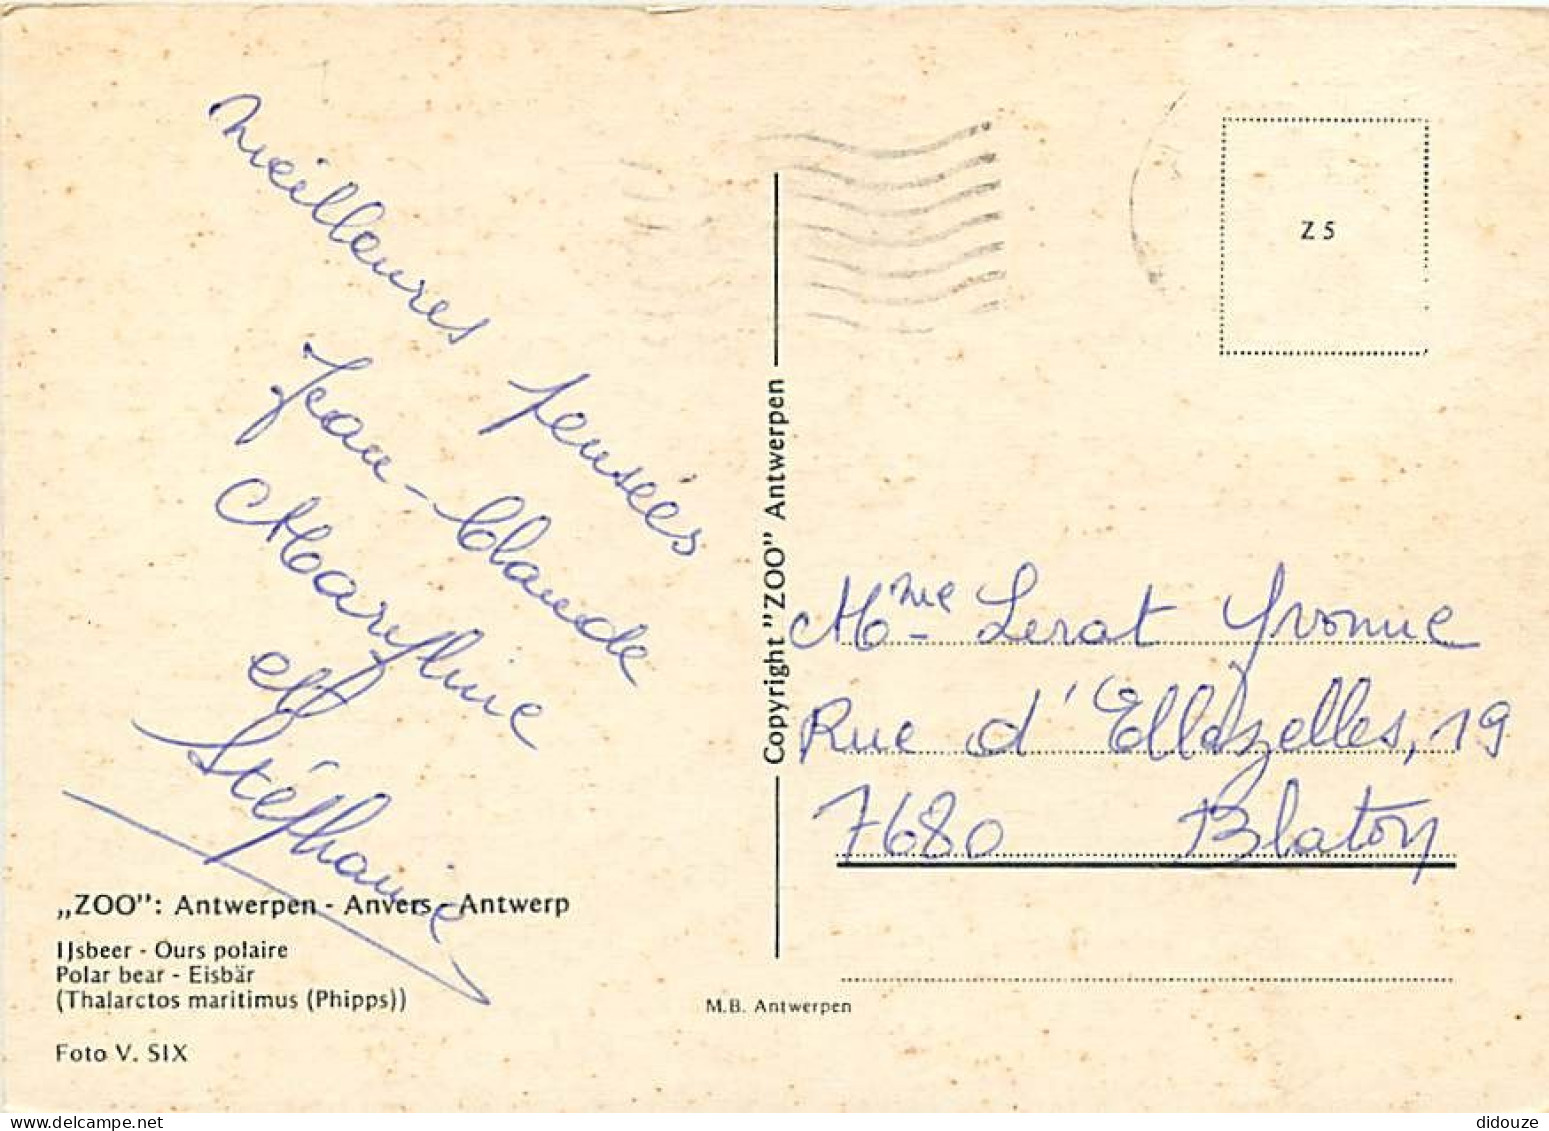 meilleures pensées
Jean-Claude
Maryline
et
Stéphanie
„ZOO”: Antwerpen - Anvers - Antwerp
IJsbeer - Ours polaire
Polar bear - Eisbär
(Thalarctos maritimus (Phipps))
Foto V. SIX
Copyright "ZOO" Antwerpen
M.B. Antwerpen
Z 5
Mme Lerat Yvonne
Rue d'Ellezelles, 19
7680 Blaton
didouze